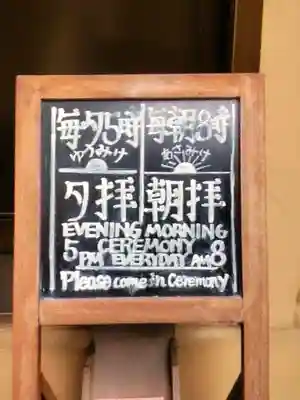 毎夕5時 毎朝8時
ゆうみけ あさみけ
夕拝 朝拝
EVENING MORNING
CEREMONY
5 PM EVERYDAY AM 8
Please come in Ceremony